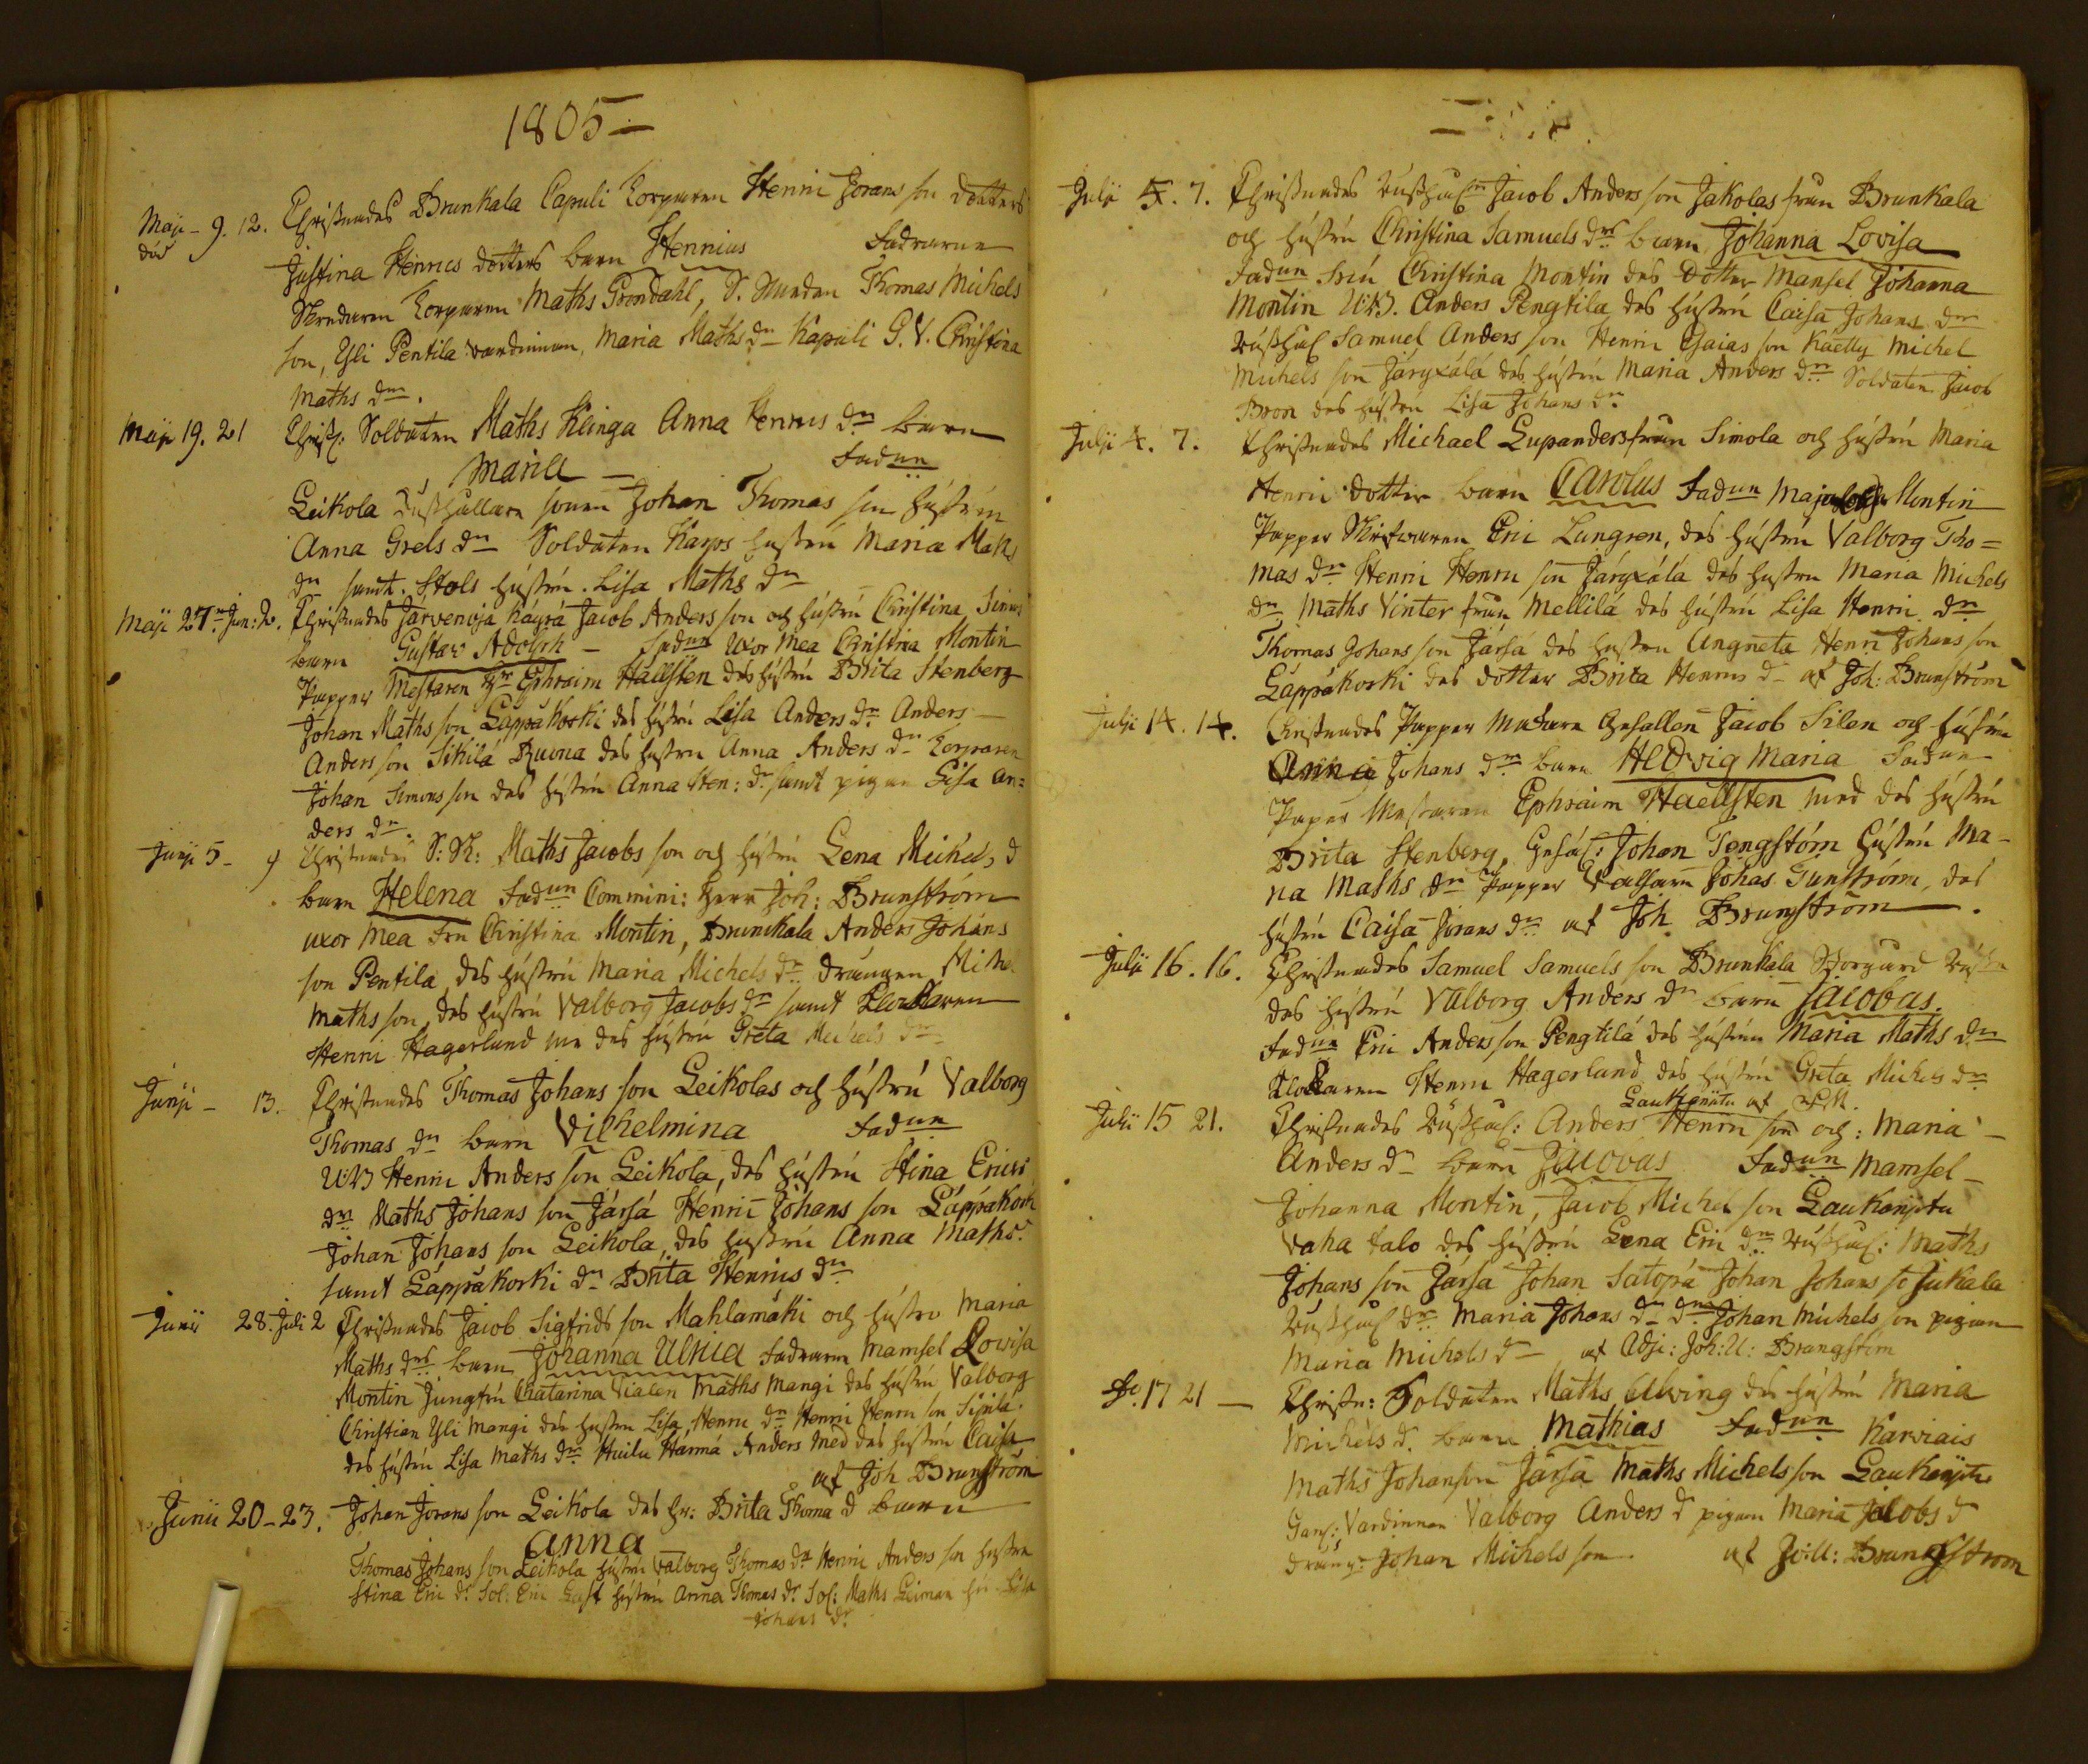 1805 —
Maji - 9. 12. Christnades Brunkala Capuli Korparen Henric Jorans son dotters
död Justina Henrics dotters barn Hennius Fadrarne
Skredaren Korparen Maths Grondahl, S. Thomas Michels
son, Yli Pentila vardinnan, Maria Maths dr Kapuli G. V. Christina
Maths dr.
Maji 19. 21 Christ: Soldaten Maths Klinga Anna Henrics dr barn
Maria — Fadrar
Leikola Rusthållare sonen Johan Thomas son hustrun
Anna Grels dr Soldaten hustru Maria Maths
dr samt. Stols hustru. Lisa Maths dr
Maji 27 Jun: 2. Christnades Jarvenoja Käyrä Jacob Anders son och hustru Christina Simos
barn Gustav Adolph — Fadrar Uxor Mea Christina Montin
Papper Mestaren Hr Ephraim Hallsten des hustru Brita Stenberg
Johan Maths son Läppäkoski des hustru Lisa Anders dr Anders
Anders son Sikilä des hustru Anna Anders dr Korparen
Johan Simons son des hustru Anna Hen: dr samt pigan Lisa An=
ders dr.
Junji 5 - 9 Christnades S: Sk: Maths Jacobs son och hustru Lena Michels d
barn Helena Fadrar Commini: Herr Joh: Brunström
uxor mea Fru Christina Montin, Brunkala Anders Johans
son Pentila des hustru Maria Michels dr drängen Michel
Maths son, des hustru Valborg Jacobs dr samt Klockaren
Henric Hagerlund des hustru Greta Michels dr
Junji - 13. Christnades Thomas Johans son Leikolas och hustru Valborg
Thomas dr barn Vilhelmina Fadrar
Henric Anders son Leikola, des hustru Stina Erics
dr Maths Johans son Järsä Henric Johans son Läppäkoski
Johan Johans son Leikola, des hustru Anna Maths
samt Läppäkoski dr Brita Henrics dr
Junii 28. Juli 2 Christnades Jacob Sigfrids son Mahlamäki och hustru Maria
Maths dr barn Johanna Ulrica Fadrarne Mamsel Lovisa
Montin Jungfru Chatarina Maths Mangi des hustru Valborg
Christian Yli Mangi des hustru Lisa Henric dr Henric Henric son Sipila
des hustru Lisa Maths dr Anders med des hustru Caisa
af Joh Brunström
Junii 20-23. Johan Jorans son Leikola des hu: Brita Thoma d barn
Anna
Thomas Johans son Leikola hustru Valborg Thomas dr Henric Anders son hustru
Stina Eric dr Sol: Eric hustru Anna Thomas dr Sol: Maths Leiman hu Lisa
Johans dr
Julii 4. 7. Christnades Rusthåll Jacob Anders son Jakolas från Brunkala
och hustru Christina Samuels dr barn Johanna Lovisa
Fadrar Fru Christina Montin des dotter Mansel Johanna
Montin Anders Pengtila des hustru Caisa Johans dr
Rusthåll Samuel Anders son Henric Esaias son Michel
Michels son des hustru Maria Anders dr Soldaten Jacob
Bron des hustru Lisa Johans dr
Julii 4. 7. Christnades Michael Lupanders från Simola och hustru Maria
Henric dotter barn Carolus Fadrar Montin
Papper Eric Lungren, des hustru Valborg Tho=
mas dr Henric Henric son des hustru Maria Michels
dr Maths Vinter från Mellilä des hustru Lisa Henric dr
Thomas Johans son Järsä des hustru Angneta Henric Johans son
Läppäkoski des dotter Brita Henrics d af Joh: Brunström
Julii 14. 14. Christnades Papper Makare Gesallen Jacob Silen och hustru
Anna Johans dr barn Hedvig Maria Fadrar
Paper Mestaren Ephraim Haellsten med des hustru
Brita Stenberg, Gesäl: Johan Tengström hustru Ma-
ria Maths dr Papper Johas Tunström, des
hustru Caisa Jorans dr af Joh. Brunström.
Julii 16. 16. Christnades Samuel Samuels son Brunkala
des hustru Valborg Anders dr barn Jacobus.
Fadrar Eric Anders son Pengtilä des hustru Maria Maths dr
Klockaren Henric Hagerlund des hustru Greta Michels dr
Laukanjitu af
Julii 15 21. Christnades Rusthåll: Anders Henric son och: Maria
Anders d barn Jacobas Fadrar Mamsel
Johanna Montin, Jacob Michel son Laukanjitu
Vaha talo des hustru Lena Eric dr Rusthåll: Maths
Johans son Järsä Johan Satopä Johan Johans so Jukala
Rusthåll dr Maria Johans dr Johan Michels son pigan
Maria Michels d af Adj: Joh: U: Brangström
Do. 17 21 — Christn: Soldaten Maths Alving des hustru Maria
Michels d. barn Mathias Fadrar Karviais
Maths Johanson Järsä Maths Michels son Laukanjitu
Vardinnan Valborg Anders d pigan Maria Jacobs d
dräng: Johan Michels son af Jo: U: Brangström